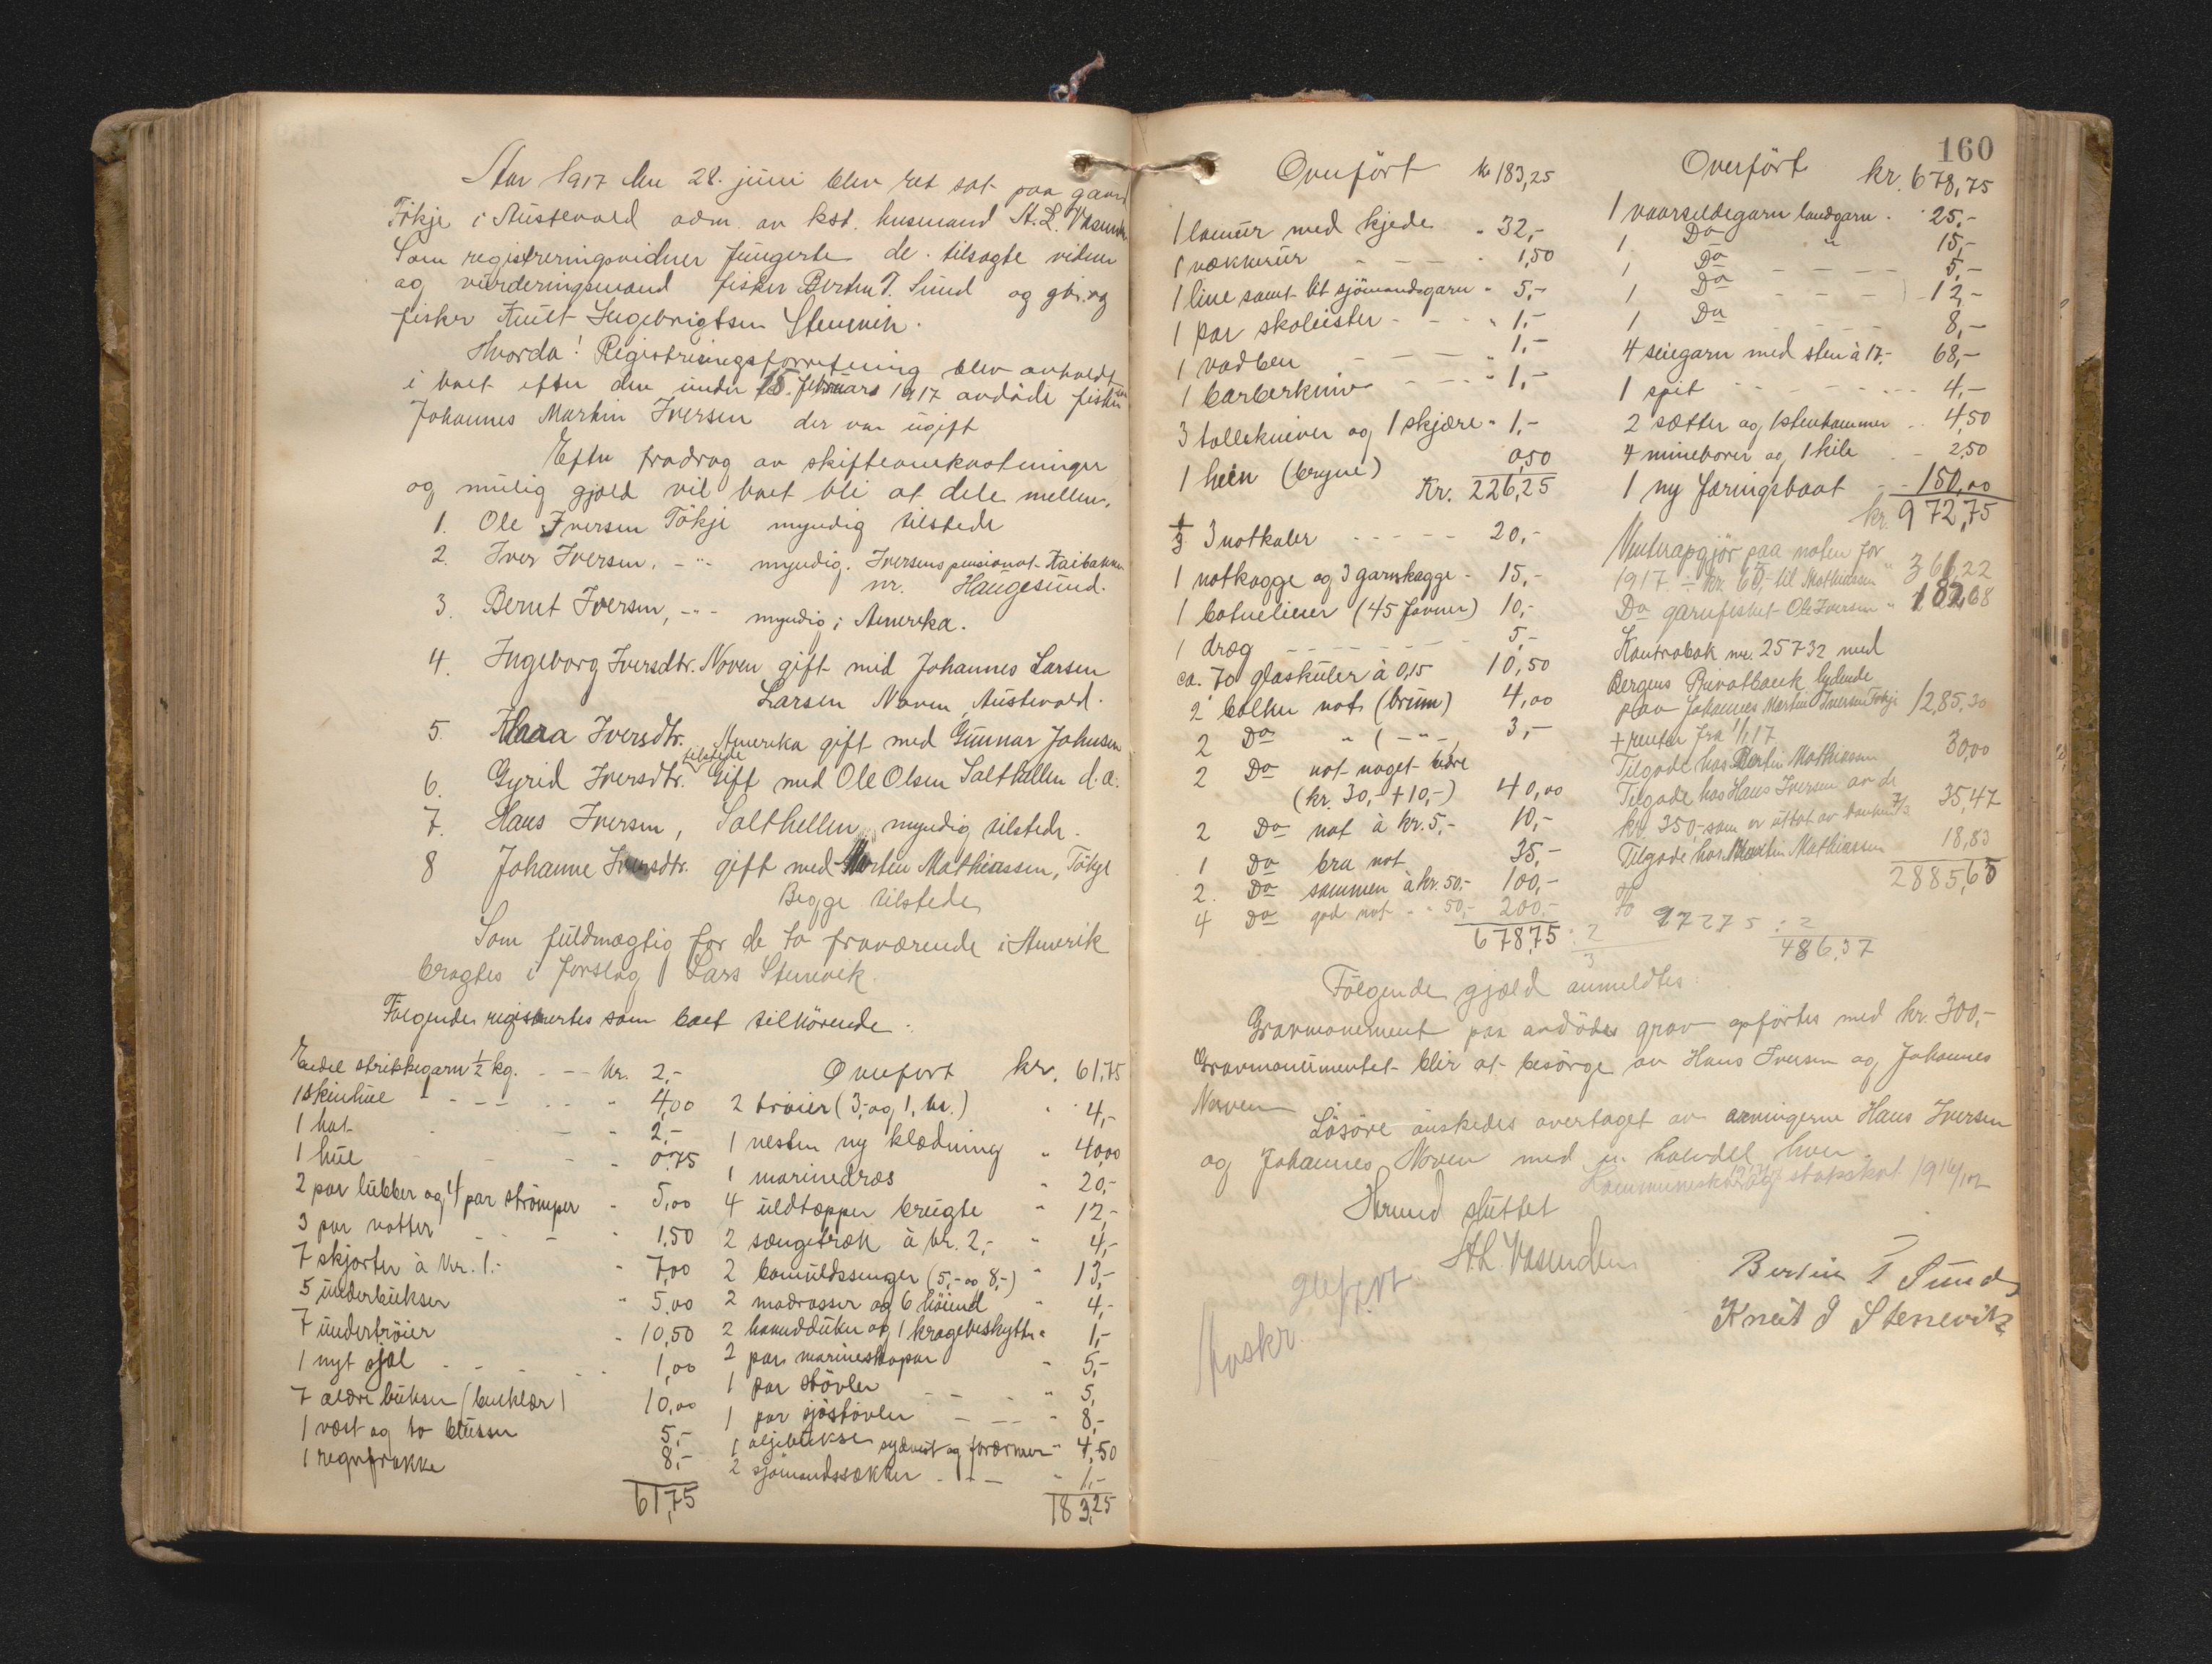 Aar 1917 den 28. juni blev ret sat paa gaard
Tökje i Austevold adm. av kst. lensmand
Som registreringsvidner fungerte de tilsagte vidner
og vurderingsmænd fisker Bertin T. Sund og gbr. og
fisker Knut Ingebrigtsen Stenevik.
Hvorda! Registreringsforretning blev avholdt
i boet efter den under 15. februars 1917 avdöde fisker
Johannes Martin Iversen der var ugift
Efter fradrag av skifteomkostninger
og mulig gjæld vil boet bli at dele mellem.
1. Ole Iversen Tökje myndig tilstede
2. Iver Iversen, -"- myndig. Iversens pensionat Kaibakken
nr. Haugesund.
3. Bernt Iversen, -"- myndig i Amerika.
4. Ingeborg Iversdtr. Noven gift mid Johannes Larsen
Larsen Noven, Austevold.
5. Iversdtr. Amerika gift med Gunnar Johnsen
tilstede
6. Gyrid Iversdtr. Gift med Ole Olsen Salthellen d.a.
7. Hans Iversen, Salthellen myndig tilstede.
8 Johanne Iversdtr. gift med Martin Mathiassen, Tökje
Begge tilstede
Som fuldmægtig for de to fraværende i Amerik
bragtes i forslag Lars Stenevik.
Fölgende registrertes som boet tilhörende:
Endel strikkegarn 1/2 kg. - - kr. 2,-
1 skinhue - - - " 4,00
1 hat " 2,-
1 hue " 0,75
2 par lubber og 4 par strömper " 5,00
3 par votter " 1,50
7 skjorter à kr. 1.- " 7,00
5 underbukser " 5,00
7 undertröier " 10,50
1 nyt sjal 1,00
7 ældre bukser (benklær) 10,00
1 vest og to blusser 5,-
1 regnfrakke 8,-
61,75
Overført kr. 61,75
2 tröier (3,- og 1, kr.) " 4,-
1 nesten ny klædning " 40,00
1 marinedres " 20,-
4 uldtepper brugte " 12,-
2 sengetræk à kr. 2,- " 4,-
2 bomuldssenger (5,- og 8,-) " 13,-
2 madrasser og 6 höiend " 4,-
2 hovedduker og 1 kragebeskytter " 1,-
2 par marineskopar " 5,-
1 par stövler - - " 5,
1 par sjöstövler - - - " 8,-
1 oljebukse sydvest og forærmer " 4,50
2 sjömandssækker - - - " 1,-
183,25
160
Overfört kr 183,25
1 lomeur med kjede " 32,-
1 vækkerur - - - " 1,50
1 line samt lit sjömandsgarn " 5,-
1 par skoleister - - - " 1,-
1 vadben - - - " 1,-
1 barberkniv - - - " 1,-
3 tollekniver og 1 skjære " 1,-
1 hein (bryne) 0,50
Kr. 226,25
1/3 3 notkaler - - - - 20,-
1 notkagge og 3 garnkagge - 15,-
1 botneliner (45 favner) 10,-
1 dræg - - - - 5,-
ca. 70 glaskuler à 0,15 10,50
2 bolker not (brun) 4,00
2 Do " ( - " - ) 3,-
2 Do not noget bedre
(kr. 30,- + 10,-) 40,00
2 Do not à kr. 5,- 10,-
1 Do bra not 35,-
2. Do sammen à kr. 50,- 100,-
4 Do god not " " 50,- 200,-
678,75 : 2
3
Overfört kr. 678,75
1 vaarsildegarn landgarn . " 25,-
1 Do " 15,-
1 Do - - - - 5,-
1 Do - - - 12,-
1 Do - - - - 8,-
4 seiegarn med sten à 17,- 68,-
1 spit - - - - 4,-
2 sætter og 1 stenhammer .. 4,50
4 mineborer og 1 kile - 2,50
1 ny færingsbaat - - 150,00
kr. 972,75
Vinteropgjör paa noten for
1917 ÷ kr 60,- til Mathiassen " 366,22
Do garnfisket Ole Iversen " 182,68
Kontrabok nr. 25732 med
Bergens Privatbank lydende
paa Johannes Martin Iversen Tökje 1285,30
+ renter fra 1/1 17
Tilgode hos Martin Mathiassen 30,00
Tilgode hos Hans Iversen av de
kr. 350,- som er uttat av banken 7/3 35,47
Tilgode hos Martin Mathiassen 18,83
2885,65
972 75 : 2
486,37
Fölgende gjæld anmeldtes:
Gravmonement paa avdödes grav opförtes med kr. 300,-
Gravmonumentet blir at besörge av Hans Iversen og Johannes
Noven
Lösöre önskedes overtaget av arvingerne Hans Iversen
og Johannes Noven med en halvdel hver.
Kommuneskat og statsskat 1916/17
Herved sluttet
Bertin T Sund
Knut I Stenevik